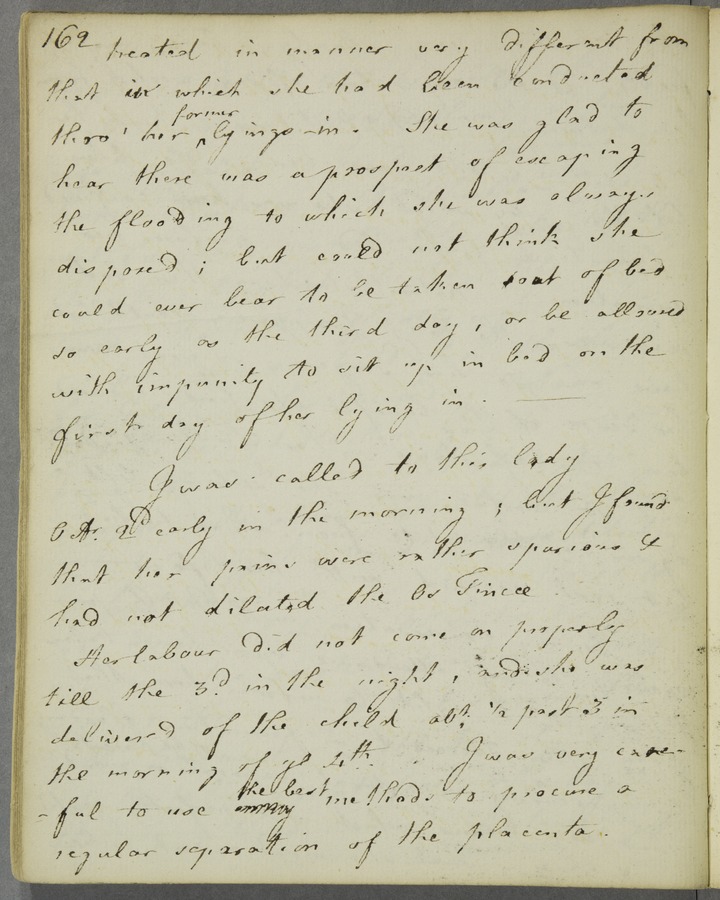 162
treated in manner very different from
that in which she had been conducted
thro' her former lyings-in. She was glad to
hear there was a prospect of escaping
the flooding to which she was always
disposed; but could not think she
could ever bear to be taken out of bed
so early as the third day, or be allowed
with impunity to sit up in bed on the
first day of her lying in. —
I was called to this lady
Octr. 2d early in the morning; but I found
that her pains were rather spurious &
had not dilated the Os Tincæ
Her labour did not come on properly
till the 3d in the night, and she was
delivered of the child abt. ½ past 3 in
the morning of ye 4th. I was very care-
-ful to use the best methods to procure a
regular separation of the placenta.